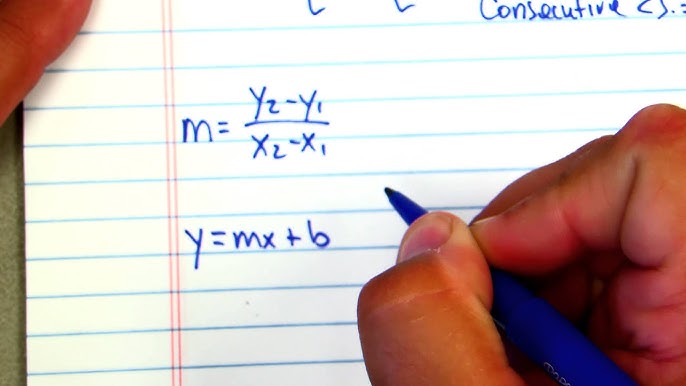 Consecutive <s. =
m = y₂-y₁ / x₂-x₁
y = mx + b